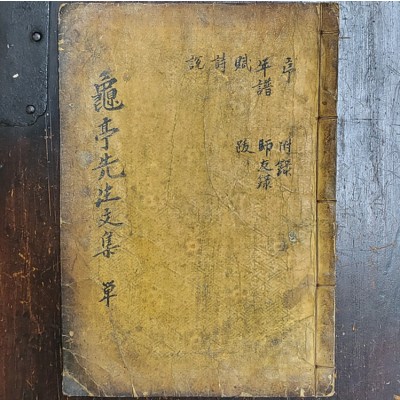 序
年譜
賦
詩
說
附錄
師友錄
跋
龜亭先生文集 単